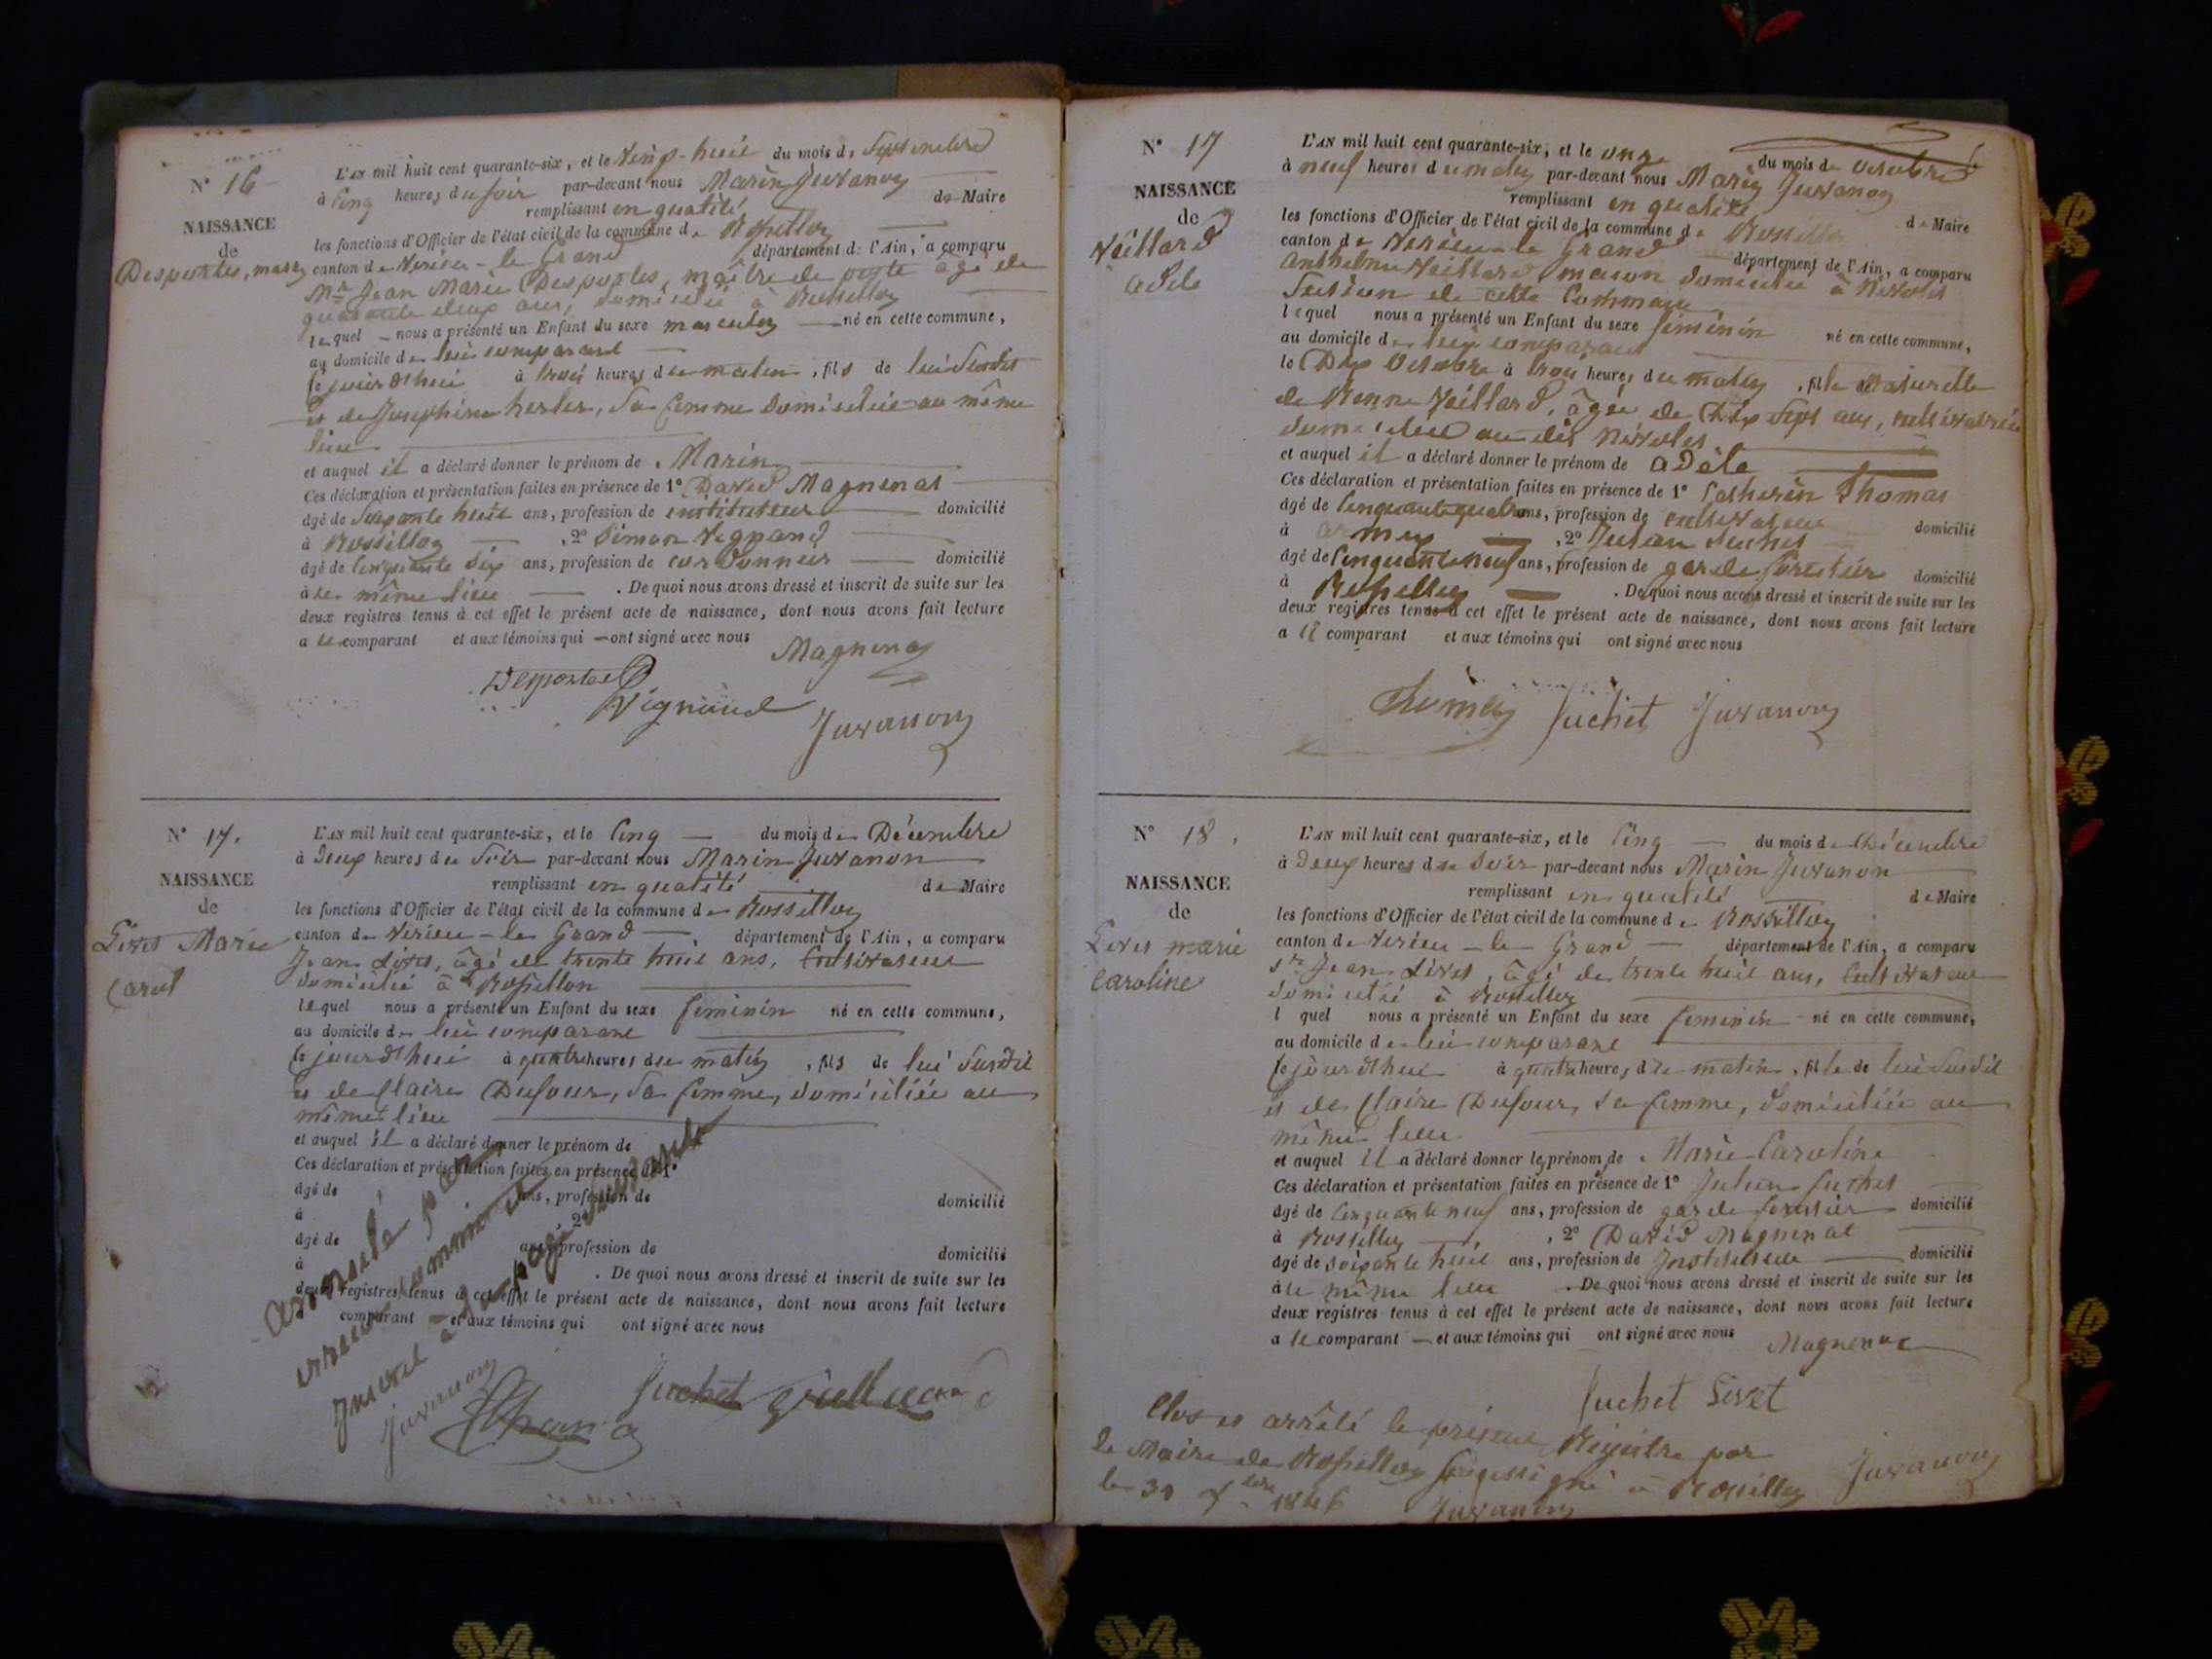 N° 16
NAISSANCE
de
Desportes, marin
L'AN mil huit cent quarante-six, et le vingt-huit du mois de Septembre
à cinq heures du soir par-devant nous Marin Juvanon
remplissant en qualité de Maire
les fonctions d'Officier de l'état civil de la commune de Rossillon
canton de Virieu-le Grand département de l'Ain, a comparu
Mr Jean Marie Desportes, maître de poste âgé de
quarante deux ans, domicilié à Rossillon
lequel nous a présenté un Enfant du sexe masculin né en cette commune,
au domicile de lui comparant
ce jourd'hui à trois heures du matin, fils de lui Susdit
et de Josephine herbes, sa femme domiciliée au même
lieu
et auquel il a déclaré donner le prénom de Marin
Ces déclaration et présentation faites en présence de 1° David Magnenat
âgé de soixante huit ans, profession de instituteur domicilié
à Rossillon, 2° Simon Vignand
âgé de cinquante six ans, profession de cordonnier domicilié
à le même lieu. De quoi nous avons dressé et inscrit de suite sur les
deux registres tenus à cet effet le présent acte de naissance, dont nous avons fait lecture
a le comparant et aux témoins qui ont signé avec nous
Magnenat
Desportes
Vignand
Juvanon
N° 17.
NAISSANCE
de
Livet Marie
Carol
L'AN mil huit cent quarante-six, et le cinq du mois de Décembre
à deux heures du soir par-devant nous Marin Juvanon
remplissant en qualité de Maire
les fonctions d'Officier de l'état civil de la commune de Rossillon
canton de Virieu-le Grand, département de l'Ain, a comparu
Jean Livet, âgé de trente huit ans, cultivateur
domicilié à Rossillon
lequel nous a présenté un Enfant du sexe feminin né en cette commune,
au domicile de lui comparant
ce jourd'hui à quatre heures du matin, fils de lui Susdit
et de Claire Dufour, sa femme, domiciliée au
même lieu
et auquel il a déclaré donner le prénom de
Ces déclaration et présentation faites en présence de 1°
âgé de ans, profession de domicilié
à, 2°
âgé de ans, profession de domicilié
à. De quoi nous avons dressé et inscrit de suite sur les
deux registres tenus à cet effet le présent acte de naissance, dont nous avons fait lecture
comparant et aux témoins qui ont signé avec nous
annulé par
erreur commise et
inscrit à la page suivante
Juvanon
Suchet
N° 17
NAISSANCE
de
Veillard
Adele
L'AN mil huit cent quarante-six, et le onze du mois de octobre
à neuf heures du matin par-devant nous Marin Juvanon
remplissant en qualité de Maire
les fonctions d'Officier de l'état civil de la commune de Rossillon
canton de Virieu-le Grand département de l'Ain, a comparu
Anthelme Veillard maçon domicilié à
Section de cette Commune
lequel nous a présenté un Enfant du sexe féminin né en cette commune,
au domicile de lui comparant
le Dix Octobre à trois heures du matin, fille naturelle
de Veillard, âgée de Dix Sept ans, cultivatrice
domiciliée au dit
et auquel il a déclaré donner le prénom de Adèle
Ces déclaration et présentation faites en présence de 1° Catherin Thomas
âgé de Cinquante quatre ans, profession de cultivateur domicilié
à, 2° Julien Suchet
âgé de Cinquante neuf ans, profession de garde forestier domicilié
à Rossillon. De quoi nous avons dressé et inscrit de suite sur les
deux registres tenus à cet effet le présent acte de naissance, dont nous avons fait lecture
a le comparant et aux témoins qui ont signé avec nous
Thomas Suchet Juvanon
N° 18.
NAISSANCE
de
Livet marie
Caroline
L'AN mil huit cent quarante-six, et le cinq du mois de Décembre
à deux heures du Soir par-devant nous Marin Juvanon
remplissant en qualité de Maire
les fonctions d'Officier de l'état civil de la commune de Rossillon
canton de Virieu-le-Grand département de l'Ain, a comparu
Sr Jean Livet, âgé de trente huit ans, cultivateur
domicilié à Rossillon
l quel nous a présenté un Enfant du sexe feminin né en cette commune,
au domicile de lui comparant
ce jourd'hui à quatre heures du matin, fille de lui Susdit
et de Claire Dufour, sa femme, domiciliée au
même lieu
et auquel il a déclaré donner le prénom de Marie Caroline
Ces déclaration et présentation faites en présence de 1° Julien Suchet
âgé de cinquante neuf ans, profession de garde forestier domicilié
à Rossillon, 2° David Magnenat
âgé de soixante huit ans, profession de Instituteur domicilié
à le même lieu. De quoi nous avons dressé et inscrit de suite sur les
deux registres tenus à cet effet le présent acte de naissance, dont nous avons fait lecture
a le comparant et aux témoins qui ont signé avec nous
Magnenat
Suchet Livet
Clos et arrêté le présent Registre par
le Maire de Rossillon soussigné à Rossillon Juvanon
le 31 Xbre 1846 Juvanon